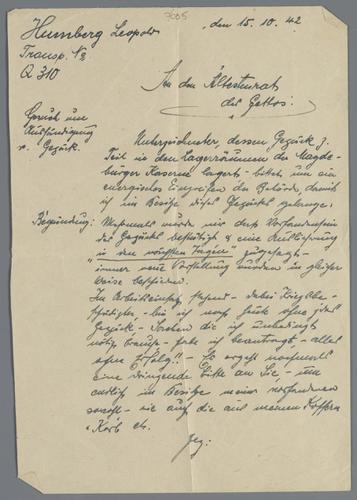 7005
Humberg Leopold
den 15.10.42
Transp. No
Q 310
An den Ältestenrat
des Gettos!
Gesuch um
Ausfindigung
v. Gepäck.
Unterzeichneter, dessen Gepäck z.
Teil in den Lagerräumen der Magde-
burger Kaserne lagert – bittet um ein
energisches Eingreifen der Behörde, damit
ich im Besitze dieses Gepäckes gelange.
Begründung: Mehrmals wurde mir das Vorhandensein
des Gepäcks bestätigt & eine Auslieferung
"in den nächsten Tagen" zugesagt –
immer neue Vorstellung wurden in gleicher
Weise beschieden.
Im Arbeitseinsatz stehend – dabei Kriegsbe-
schädigter, bin ich noch heute ohne jedes
Gepäck – Sachen die ich unbedingt
nötig brauche – habe ich beantragt – alles
ohne Erfolg!! – Es ergeht nochmals
eine dringende Bitte an Sie, – um
endlich im Besitze meiner vorhandenen
sowohl – wie auch die aus meinen Koffern
& Korb etc.